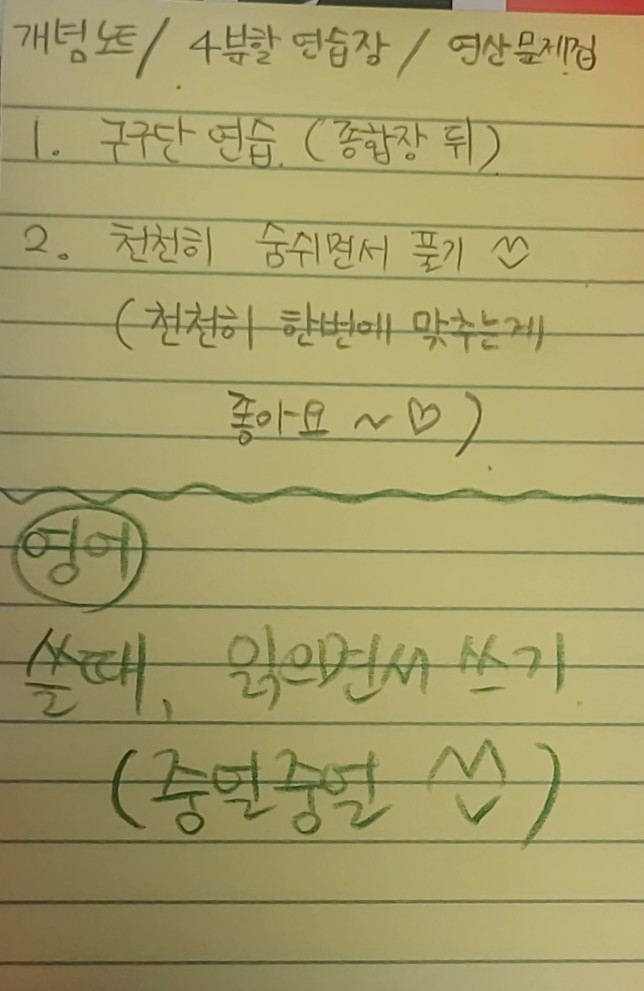 개념노트 / 4분할 연습장 / 연산문제집
1. 구구단 연습. (종합장 뒤)
2. 천천히 숨쉬면서 풀기
(천천히 한번에 맞추는게
좋아요 ~ ♡)
영어
쓸때, 읽으면서 쓰기
(중얼중얼)